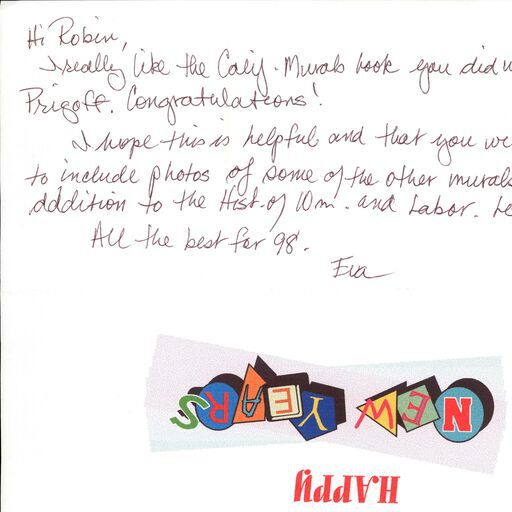 Hi Robin,
I really like the Calif. Murals book you did w
Prigoff. Congratulations!
I hope this is helpful and that you we
to include photos of some of the other murals
addition to the Hist. of 10m. and Labor. Le
All the best for 98.
Eva
HAPPY
NEW YEARS